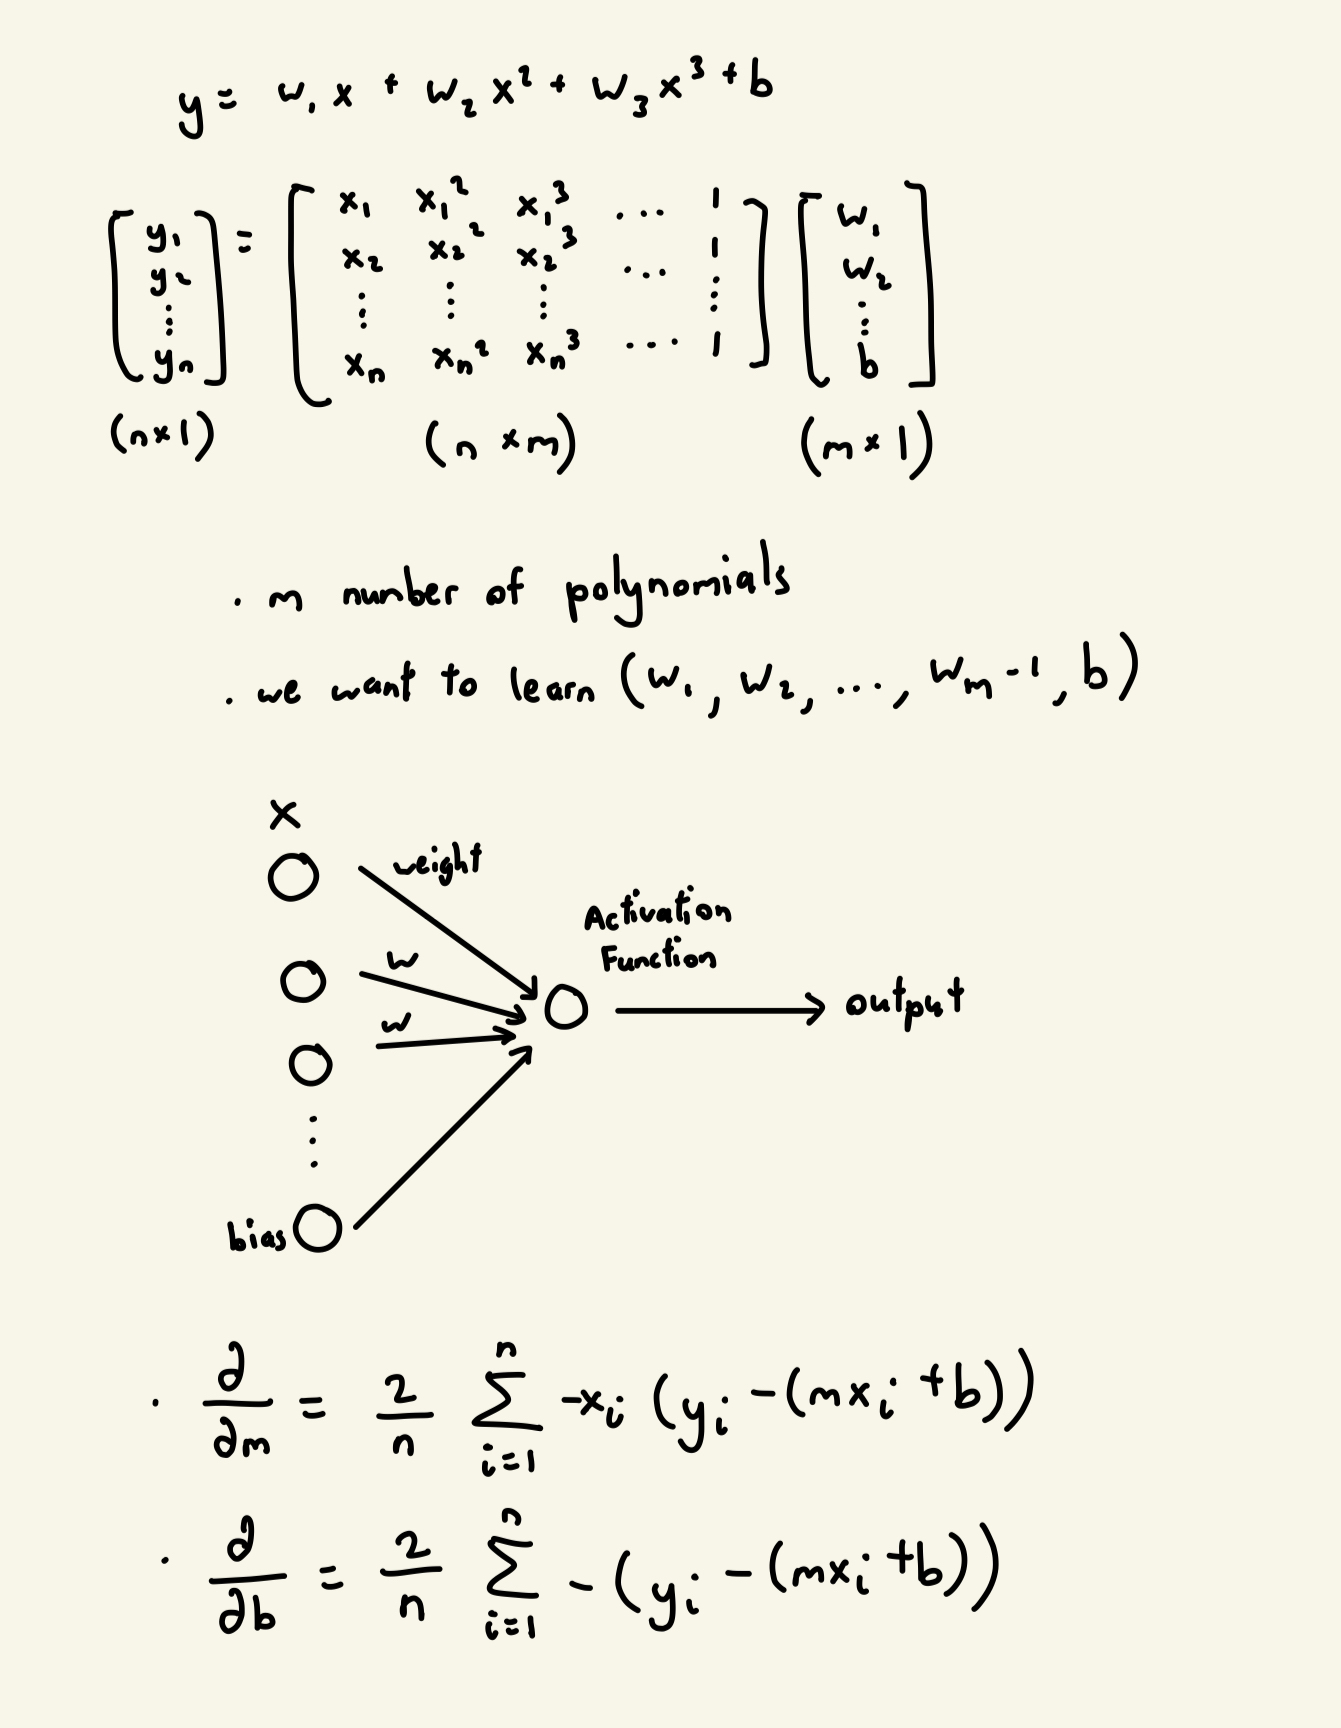 y = w₁x + w₂x² + w₃x³ + b
[y₁ y₂ ⋮ yₙ] = [x₁ x₁² x₁³ ... 1
x₂ x₂² x₂³ ... 1
⋮ ⋮ ⋮ ⋮
xₙ xₙ² xₙ³ ... 1] [w₁ w₂ ⋮ b]
(n×1) (n×m) (m×1)
· m number of polynomials
· we want to learn (w₁, w₂, ..., wₘ-1, b)
x
weight
Activation
w
Function
output
w
⋮
bias
· ∂/∂m = 2/n ∑ⁿᵢ₌₁ -xᵢ (yᵢ - (mxᵢ + b))
· ∂/∂b = 2/n ∑ⁿᵢ₌₁ - (yᵢ - (mxᵢ + b))